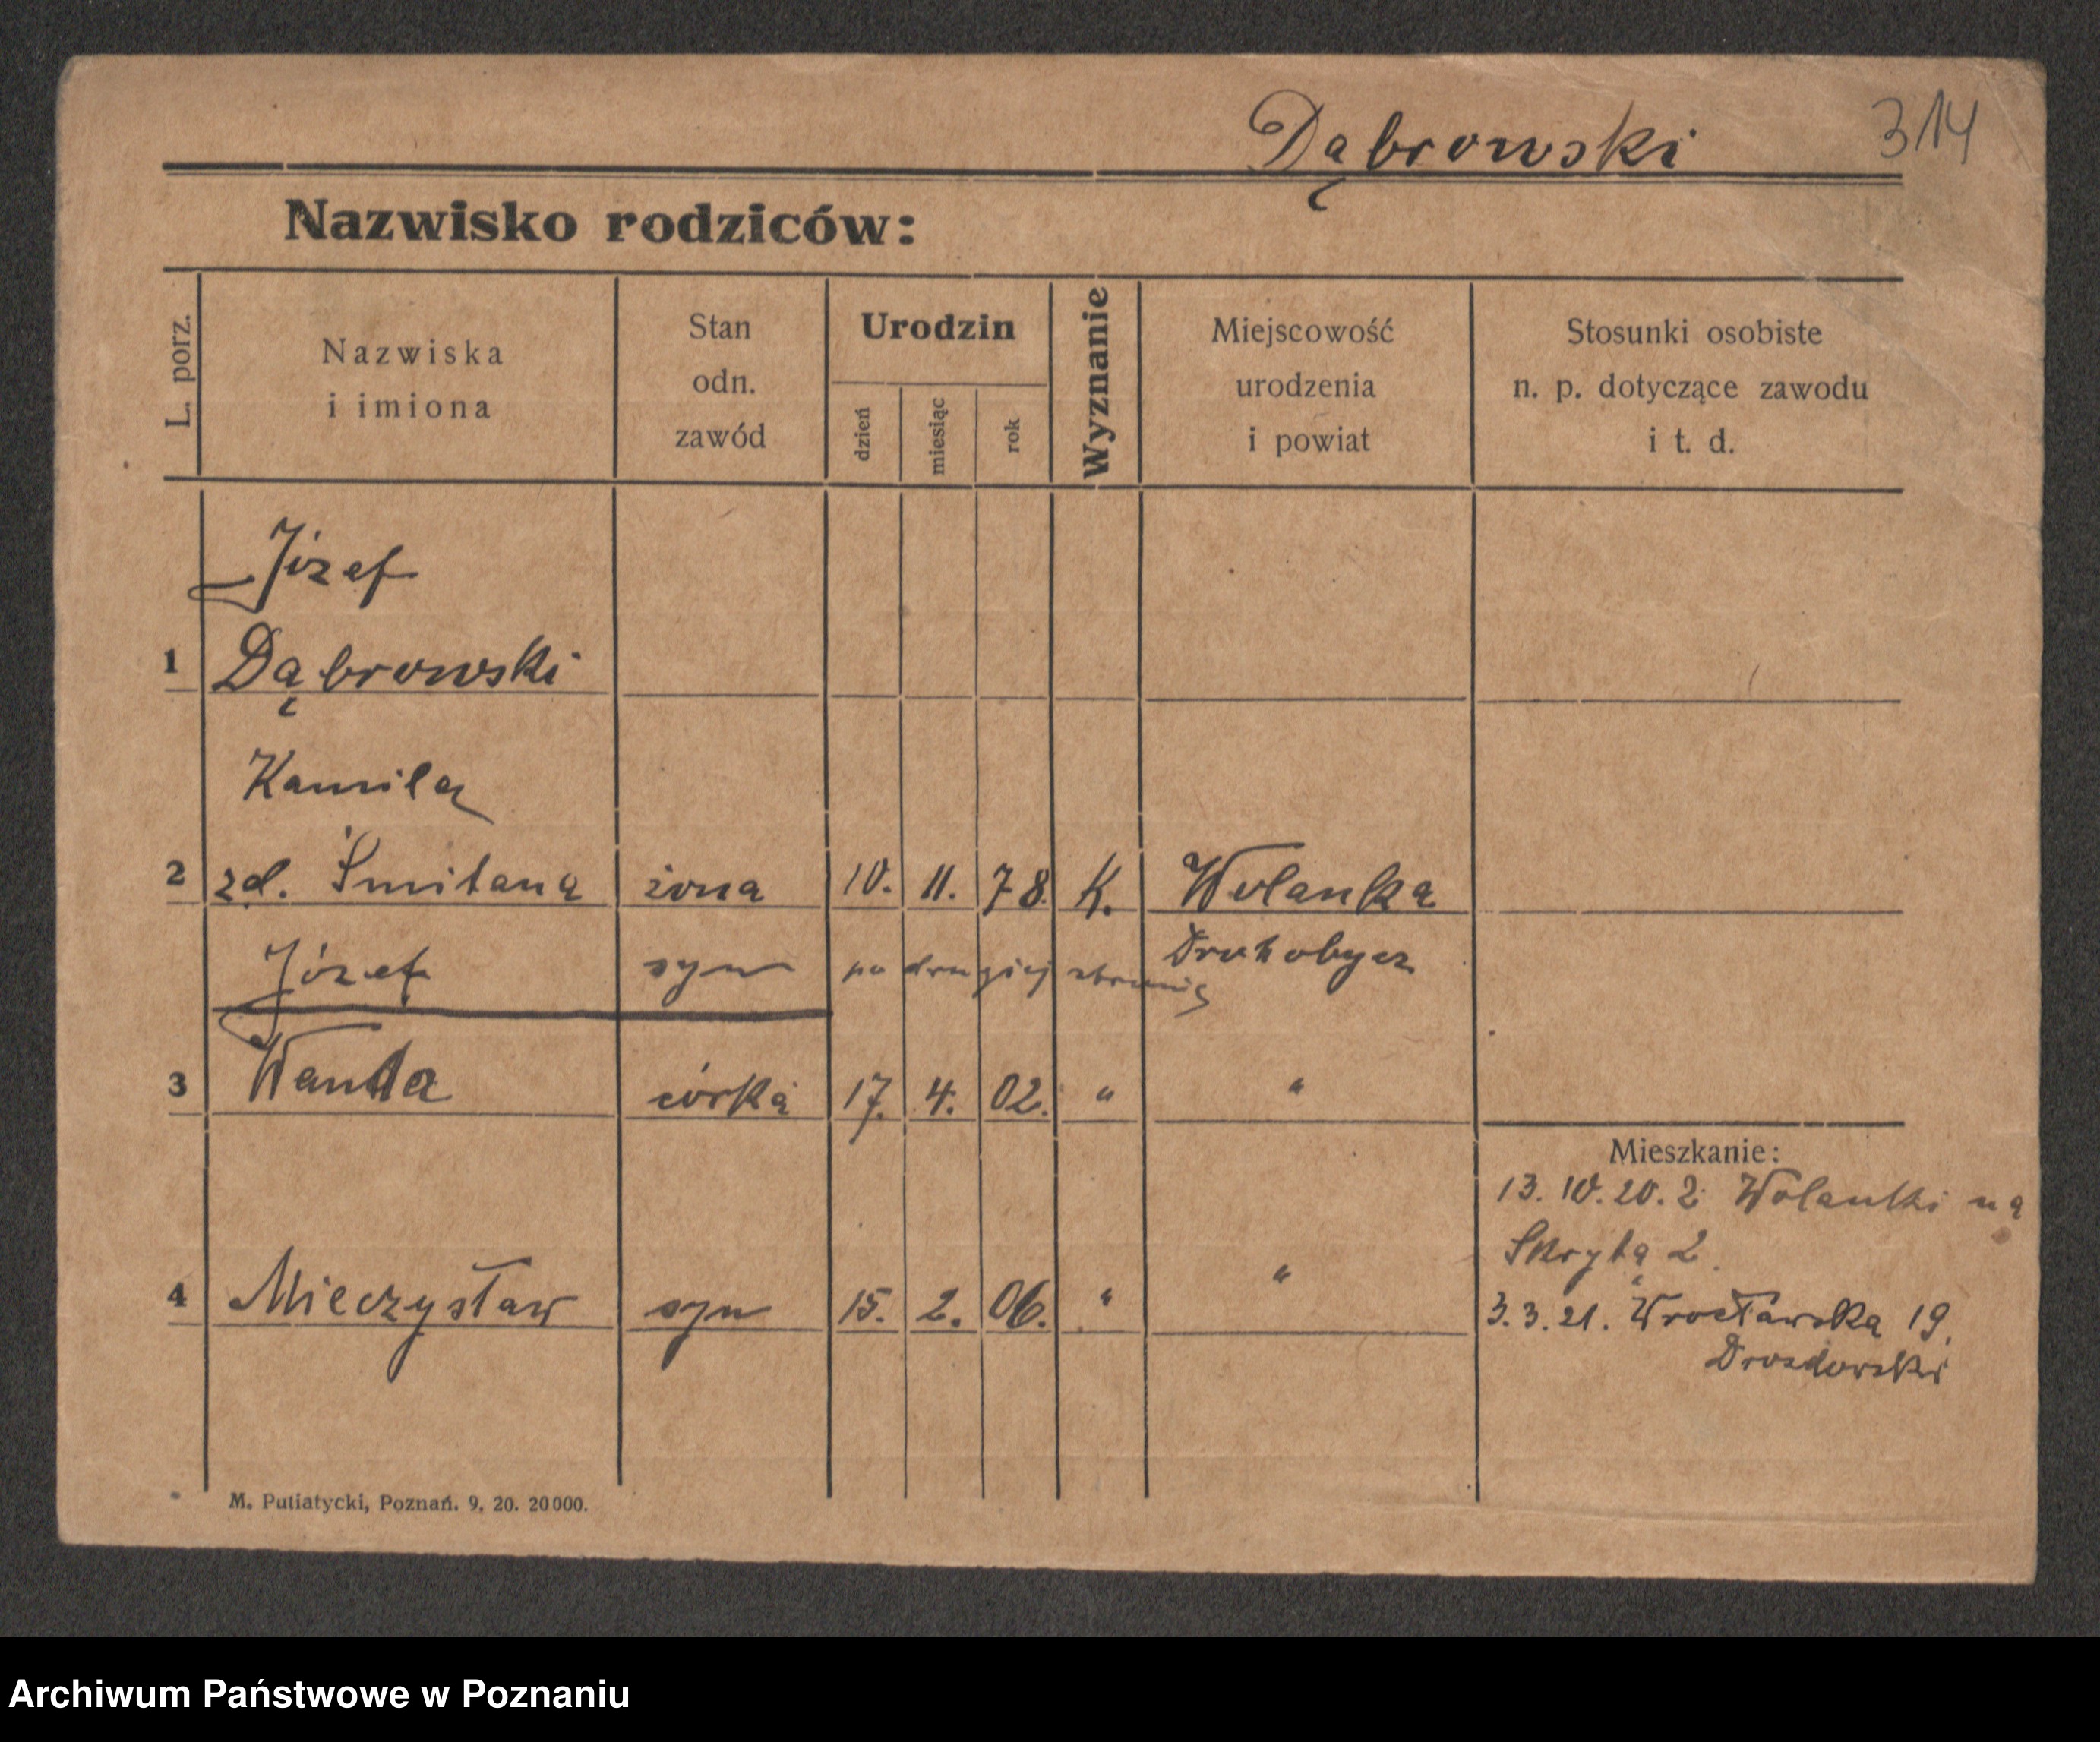 Dąbrowski 314
Nazwisko rodziców:
L. porz.
Nazwiska
i imiona
Stan
odn.
zawód
Urodzin
dzień
miesiąc
rok
Wyznanie
Miejscowość
urodzenia
i powiat
Stosunki osobiste
n. p. dotyczące zawodu
i t. d.
Józef
1 Dąbrowski
Kamila
2 zd. Śmitana żona 10. 11. 78. K. Wolanka
Józef syn po drugiej stronie Drohobycz
3 Wanda córka 17. 4. 02. " "
4 Mieczysław syn 15. 2. 06. " "
Mieszkanie:
13. 10. 20. z Wolanki na
Skryta 2.
3. 3. 21. Wrocławska 19.
Drozdowski
M. Putiatycki, Poznań. 9. 20. 20000.
Archiwum Państwowe w Poznaniu